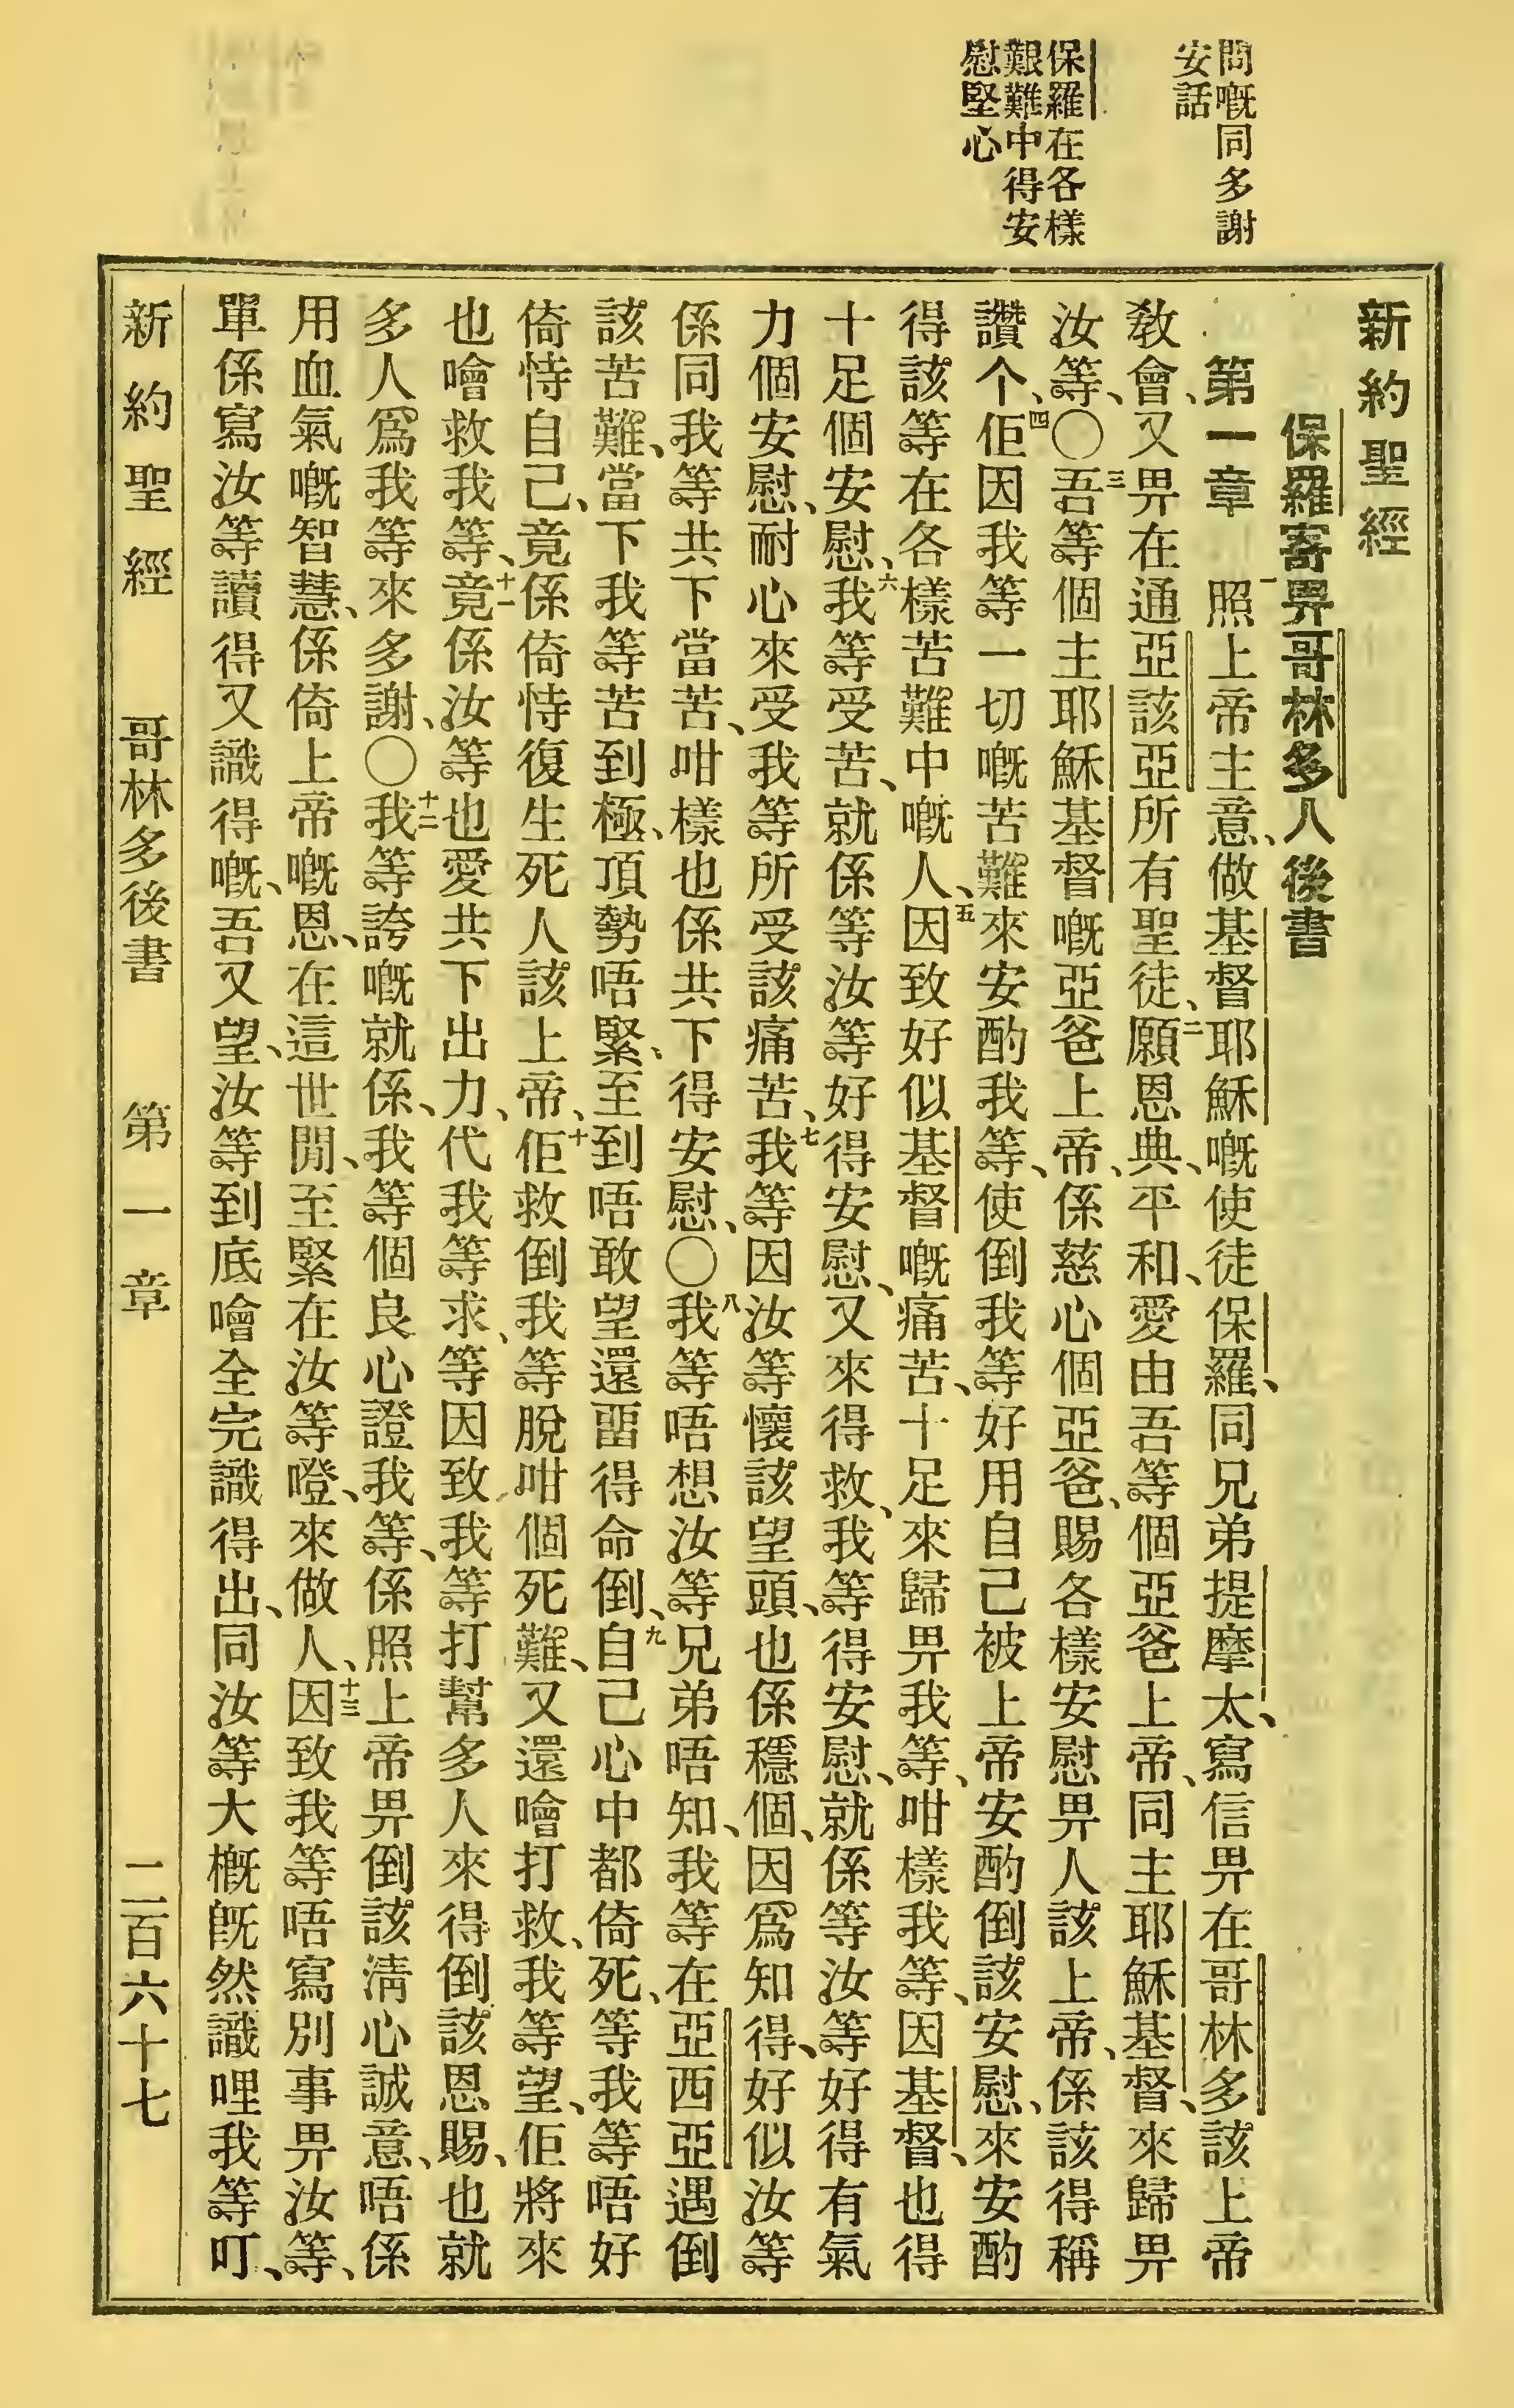 問嘅同多謝
安話
保羅在各樣
艱難中得安
慰堅心
新約聖經
保羅寄畀哥林多人後書
第一章 一照上帝主意、做基督耶穌嘅使徒保羅、同兄弟提摩太、寫信畀在哥林多該上帝
敎會、又畀在通亞該亞所有聖徒、二願恩典、平和、愛由吾等個亞爸上帝、同主耶穌基督、來歸畀
汝等、〇三吾等個主耶穌基督嘅亞爸上帝、係慈心個亞爸、賜各樣安慰畀人該上帝、係該得稱
讚个、四佢因我等一切嘅苦難來安酌我等、使倒我等好用自己被上帝安酌倒該安慰、來安酌
得該等在各樣苦難中嘅人、五因致好似基督嘅痛苦、十足來歸畀我等、咁樣我等、因基督、也得
十足個安慰、六我等受苦、就係等汝等好得安慰、又來得救、我等得安慰、就係等汝等好得有氣
力個安慰、耐心來受我等所受該痛苦、七我等因汝等懷該望頭、也係穩個、因爲知得、好似汝等
係同我等共下當苦、咁樣也係共下得安慰、〇八我等唔想汝等兄弟唔知、我等在亞西亞遇倒
該苦難、當下我等苦到極、頂勢唔緊、至到唔敢望還畱得命倒、九自己心中都倚死、等我等唔好
倚恃自己、竟係倚恃復生死人該上帝、十佢救倒我等脫咁個死難、又還噲打救、我等望、佢將來
也噲救我等、十一竟係汝等也愛共下出力、代我等求、等因致我等打幫多人來得倒該恩賜、也就
多人爲我等來多謝、〇十二我等誇嘅就係、我等個良心證我等、係照上帝畀倒該淸心誠意、唔係
用血氣嘅智慧、係倚上帝嘅恩、在這世閒、至緊在汝等噔、來做人、十三因致我等唔寫別事畀汝等、
單係寫汝等讀得又識得嘅、吾又望、汝等到底噲全完識得出、同汝等大槪旣然識哩我等叮、
新約聖經 哥林多後書 第一章 二百六十七